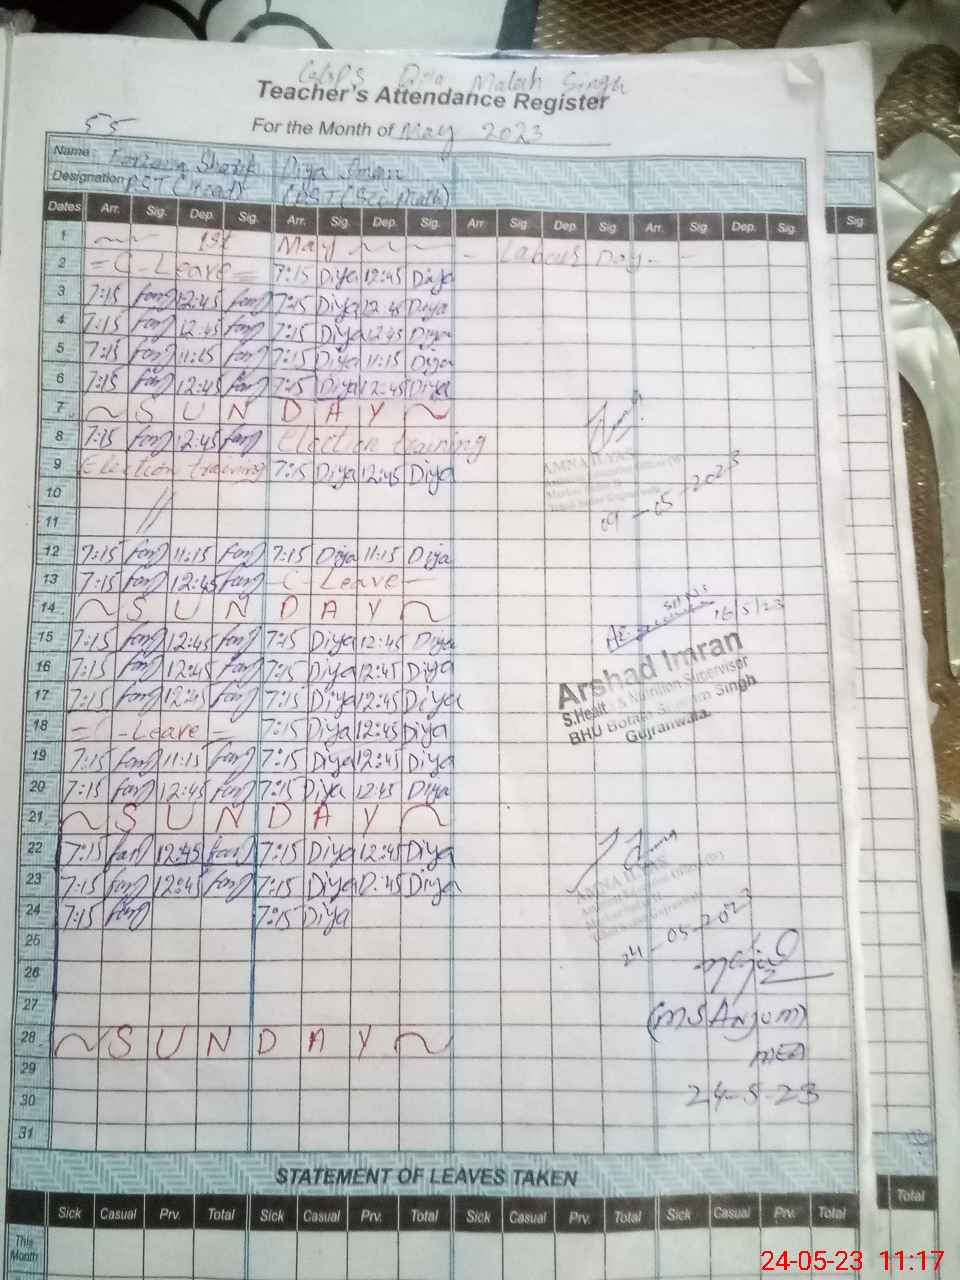 Malah Singh
Teacher's Attendance Register
For the Month of May 2023
55
Name Diya Iman
Designation PST (Head)
Dates Arr. Sig. Dep. Sig. Arr. Sig. Dep. Sig. Arr Sig. Dep. Sig. Arr. Sig. Dep. Sig. Sig.
1 1st May Labour Day
2 = C - Leave = 7:15 Diya 12:45 Diya
3 7:15 12:45 7:15 Diya 12:45 Diya
4 7:15 12:45 7:15 Diya 12:45 Diya
5 7:15 11:15 7:15 Diya 11:15 Diya
6 7:15 12:45 7:15 Diya 12:45 Diya
7 ~ S U N D A Y ~
8 7:15 12:45 Election training
9 Election training 7:15 Diya 12:45 Diya
AMNA ILYAS
10
09-05-2023
11 //
12 7:15 11:15 7:15 Diya 11:15 Diya
13 7:15 12:45 - C - Leave -
14 ~ S U N D A Y ~
16/5/23
15 7:15 12:45 7:15 Diya 12:45 Diya
16 7:15 12:45 7:15 Diya 12:45 Diya
Arshad Imran
17 7:15 12:45 7:15 Diya 12:45 Diya
S.Healt & Nutrition Supervisor
18 = C - Leave = 7:15 Diya 12:45 Diya
BHU Singh
Gujranwala.
19 7:15 11:15 7:15 Diya 12:45 Diya
20 7:15 12:45 7:15 Diya 12:45 Diya
21 ~ S U N D A Y ~
22 7:15 12:45 7:15 Diya 12:45 Diya
23 7:15 12:45 7:15 Diya 12:45 Diya
AMNA ILYAS
24 7:15 7:15 Diya
24-05-2023
25
26
27
(MS ANJUM)
28 ~ S U N D A Y ~
MEA
29
30
24-5-23
31
STATEMENT OF LEAVES TAKEN
Sick Casual Prv. Total Sick Casual Prv. Total Sick Casual Prv. Total Sick Casual Prv. Total Total
This Month
24-05-23 11:17